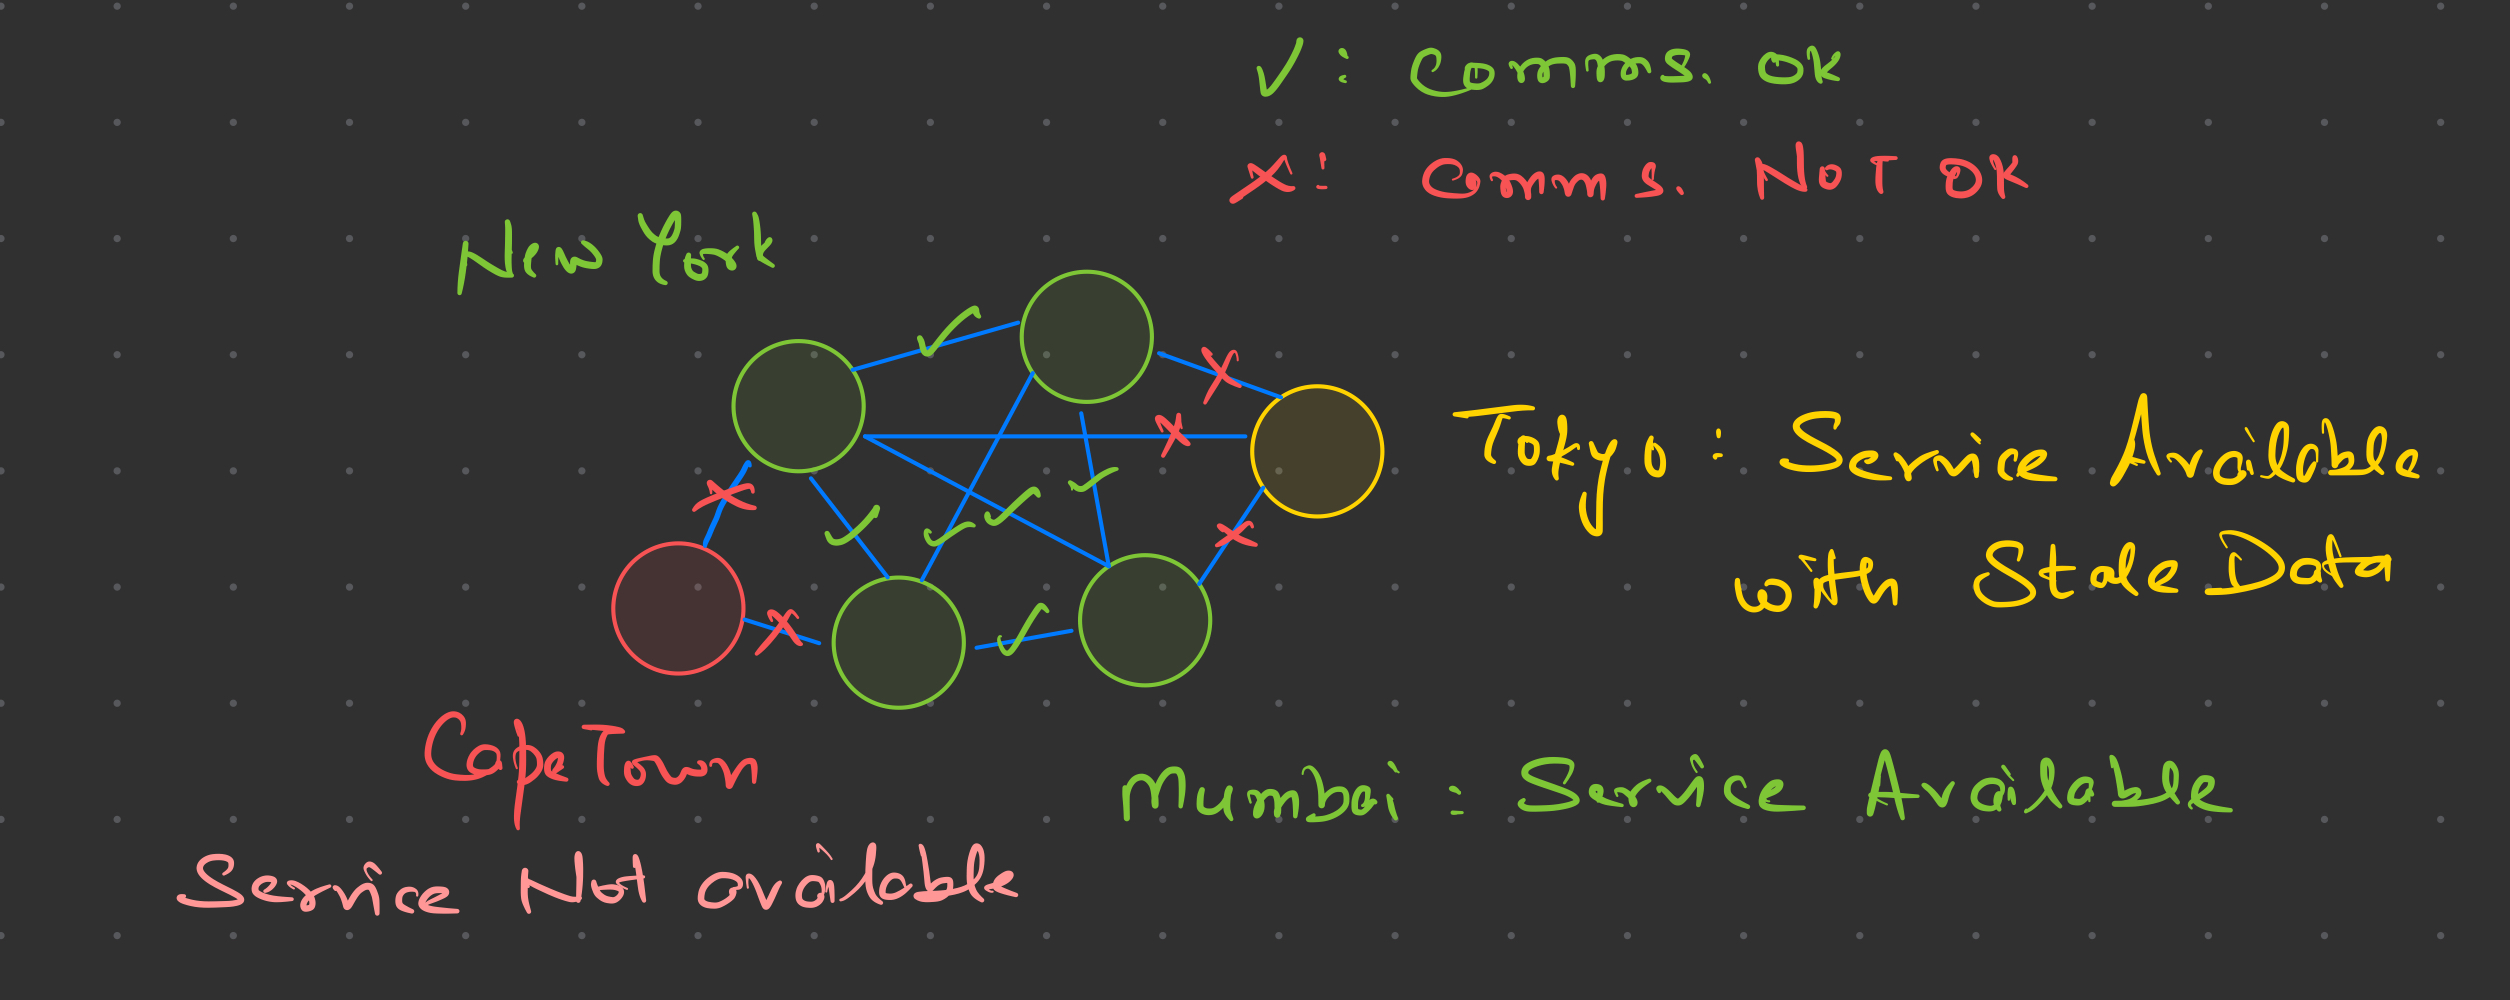 ✓: Comms. OK
✗: Comms. NOT OK
New York
Tokyo: Service Available
with Stale Data
Cape Town
Mumbai: Service Available
Service Not available